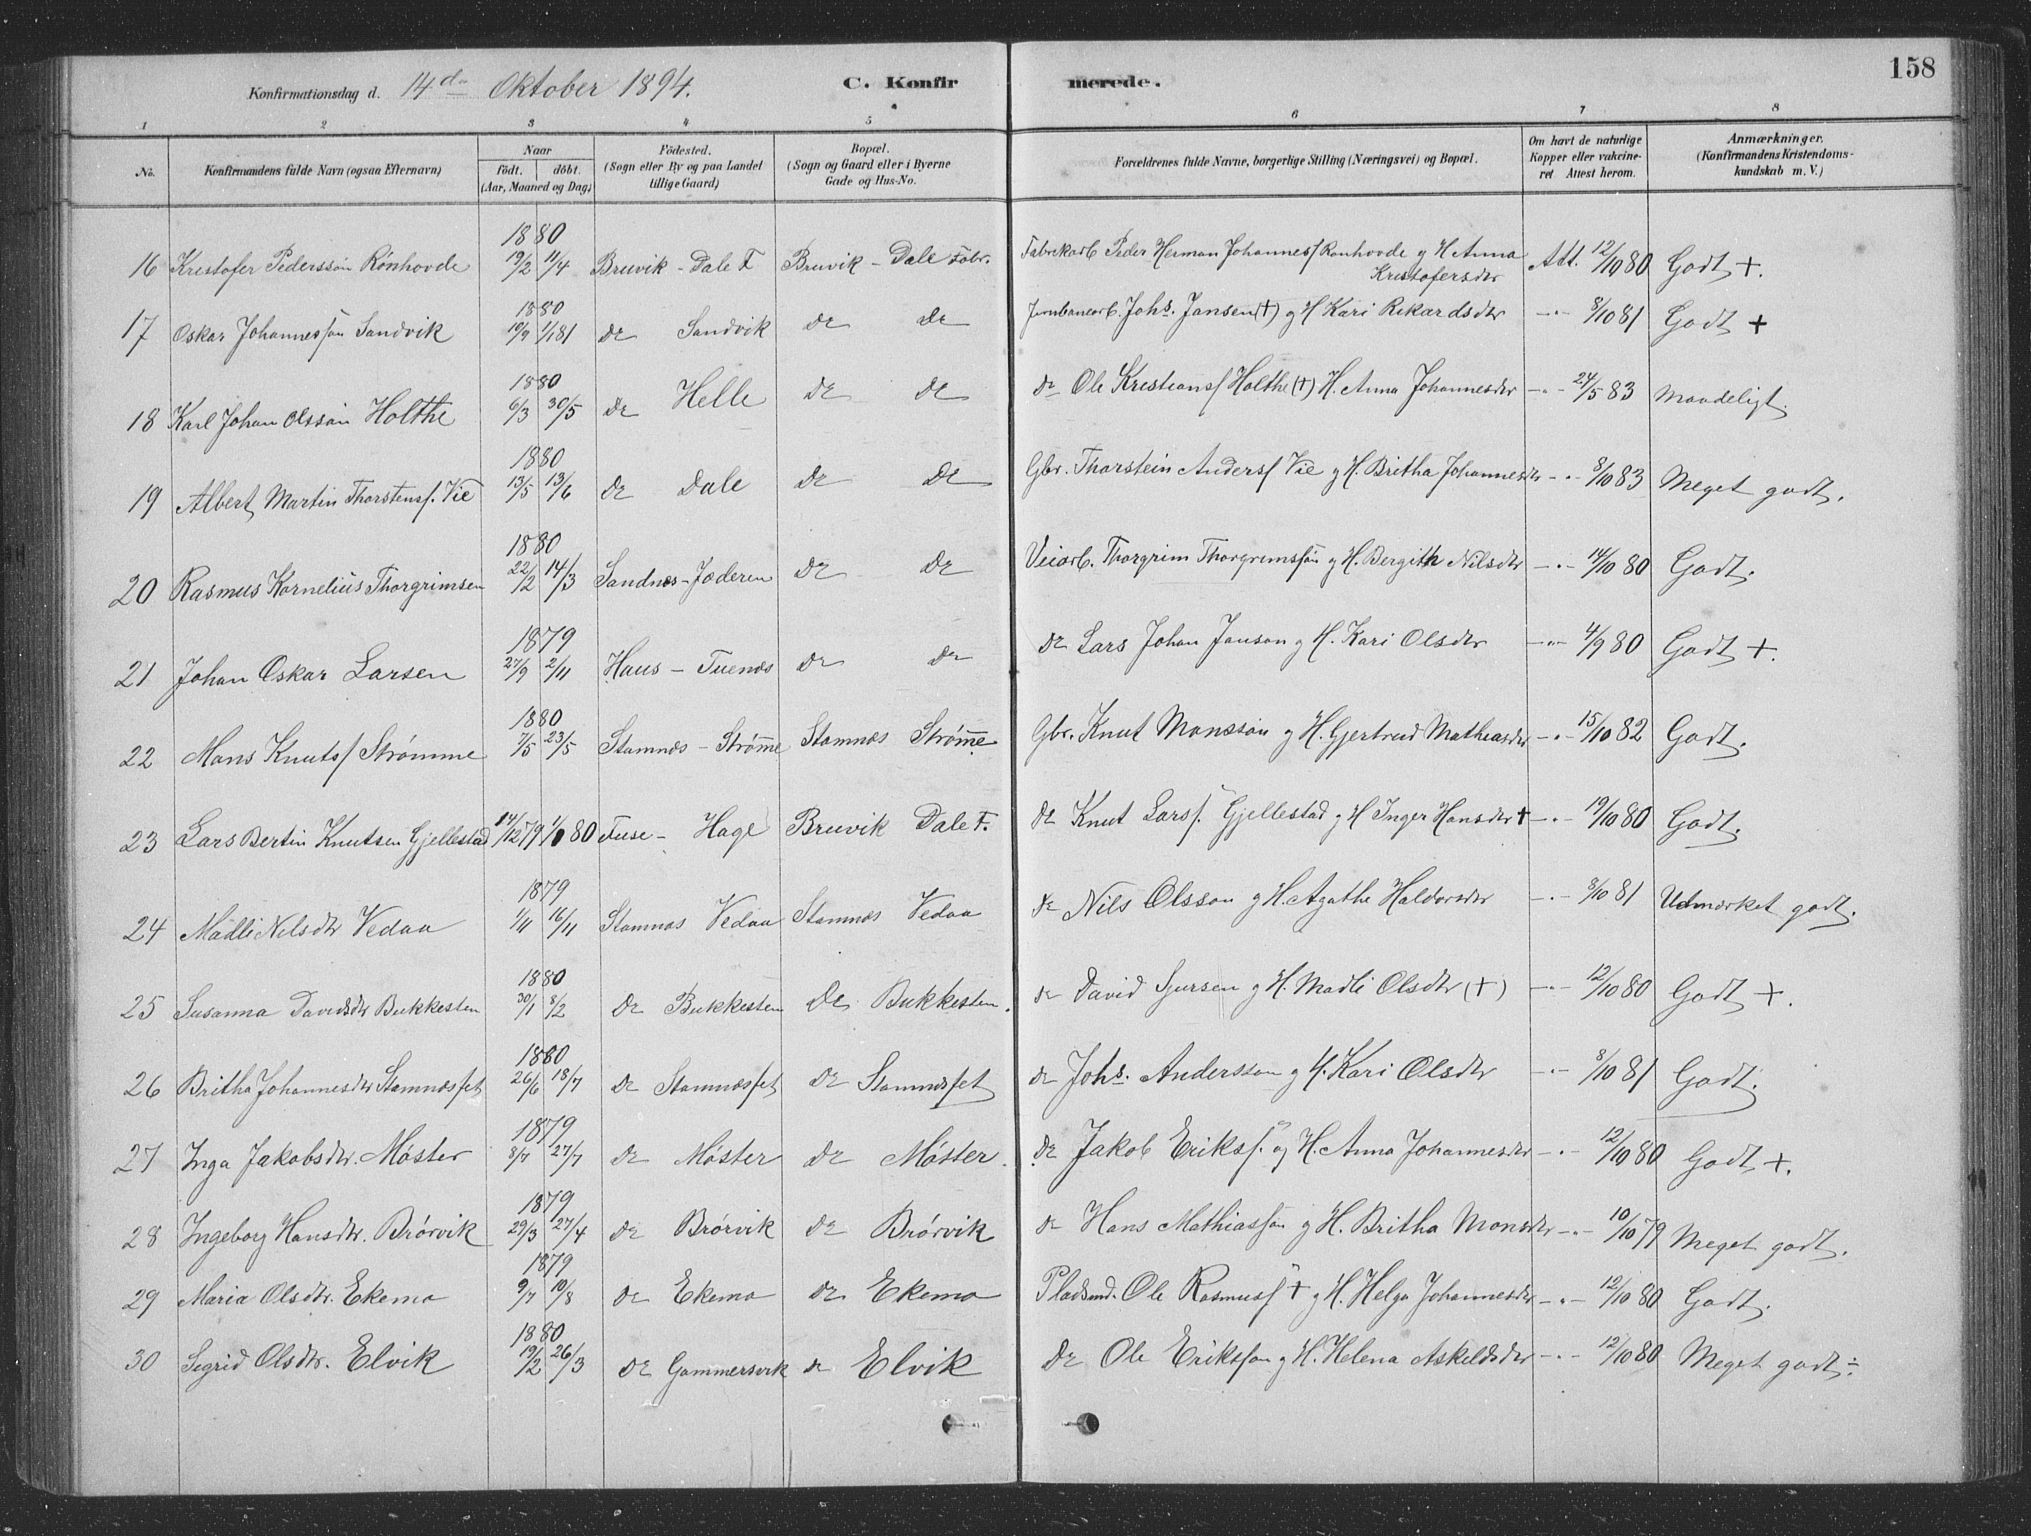 158
Konfirmationsdag d. 14de Oktober 1894. C. Konfirmerede.
1 2 3 4 5 6 7 8
No. Konfirmandens fulde Navn (ogsaa Efternavn) Naar födt. döbt. (Aar, Maaned og Dag) Födested. (Sogn eller By og paa Landet tillige Gaard) Bopæl. (Sogn og Gaard eller i Byerne Gade og Hus-No. Forældrenes fulde Navne, borgerlige Stilling (Næringsvei) og Bopæl. Om havt de naturlige Kopper eller vakcineret Attest herom. Anmærkninger. (Konfirmandens Kristendomskundskab m. V.)
16 Kristofer Pederssøn Rønhovde 1880 19/2 11/4 Bruvik - Dale F Bruvik - Dale Fabr. Fabrikarb. Peder Herman Johannesf Rønhovde g H Anna Kristofersdtr Att. 12/10 80 Godt +.
17 Oskar Johannessøn Sandvik 1880 19/9 1/1 81 do Sandvik do do Jernbanearb. Johs. Jansen (+) g H Kari Rikardsdtr -"- 8/10 81 Godt +
18 Karl Johan Olssøn Holthe 1880 6/3 30/5 do Helle do do do Ole Kristiansf Holthe (+) H. Anna Johannesdtr -"- 24/5 83 Maadeligt.
19 Albert Martin Thorstensf. Vie 1880 13/5 13/6 do Dale do do Gbr. Thorstein Andersf Vie g H. Britha Johannesdtr -"- 8/10 83 Meget godt.
20 Rasmus Kornelius Thorgrimsen 1880 22/2 14/3 Sandnæs - Jæderen do do Veiarb. Thorgrim Thorgrimssøn g H. Bergith Nilsdtr -"- 14/10 80 Godt.
21 Johan Oskar Larsen 1879 27/9 2/11 Haus - Tuenæs do do do Lars Johan Janson g H. Kari Olsdtr -"- 4/9 80 Godt +.
22 Mons Knutsf Strømme 1880 7/5 23/5 Stamnæs - Strømme Stamnæs Strømme Gbr. Knut Monssøn g H. Gjertrud Mathiasdtr -"- 15/10 82 Godt.
23 Lars Bertin Knutsen Gjellestad 14/12 79 80 Fuse - Hage Bruvik Dale F. do Knut Larsf. Gjellestad g H Inger Hansdtr + -"- 19/10 80 Godt.
24 Madli Nilsdtr Vedaa 1879 1/11 16/11 Stamnæs Vedaa Stamnæs Vedaa do Nils Olsson g H. Agathe Haldorsdtr -"- 8/10 81 Udmærket godt.
25 Susanna Davidsdtr Bukkesten 1880 30/1 8/2 do Bukkesten do Bukkesten. do David Sjursen g H. Madli Olsdtr (+) -"- 12/10 80 Godt +.
26 Britha Johannesdtr Stamnæsset 1880 26/6 18/7 do Stamnæsset do Stamnæsset do Johs. Andersson g H. Kari Olsdtr -"- 8/10 81 Godt.
27 Inga Jakobsdtr. Møster 1879 8/7 27/7 do Møster do Møster. do Jakob Eriksf. og H. Anna Johannesdtr -"- 12/10 80 Godt +.
28 Ingeborg Hansdtr. Brørvik 1879 29/3 27/4 do Brørvik do Brørvik do Hans Mathiassøn g H. Britha Monsdtr -"- 10/10 79 Meget godt.
29 Maria Olsdtr. Ekemo 1879 9/7 10/8 do Ekemo do Ekemo Pladsmd. Ole Rasmusf + g H. Helga Johannesdtr -"- 12/10 80 Godt.
30 Sigrid Olsdtr. Elvik 1880 19/2 26/3 do Gammersvik do Elvik do Ole Erikssøn g H. Helena Askeldsdtr -"- 12/10 80 Meget godt ÷